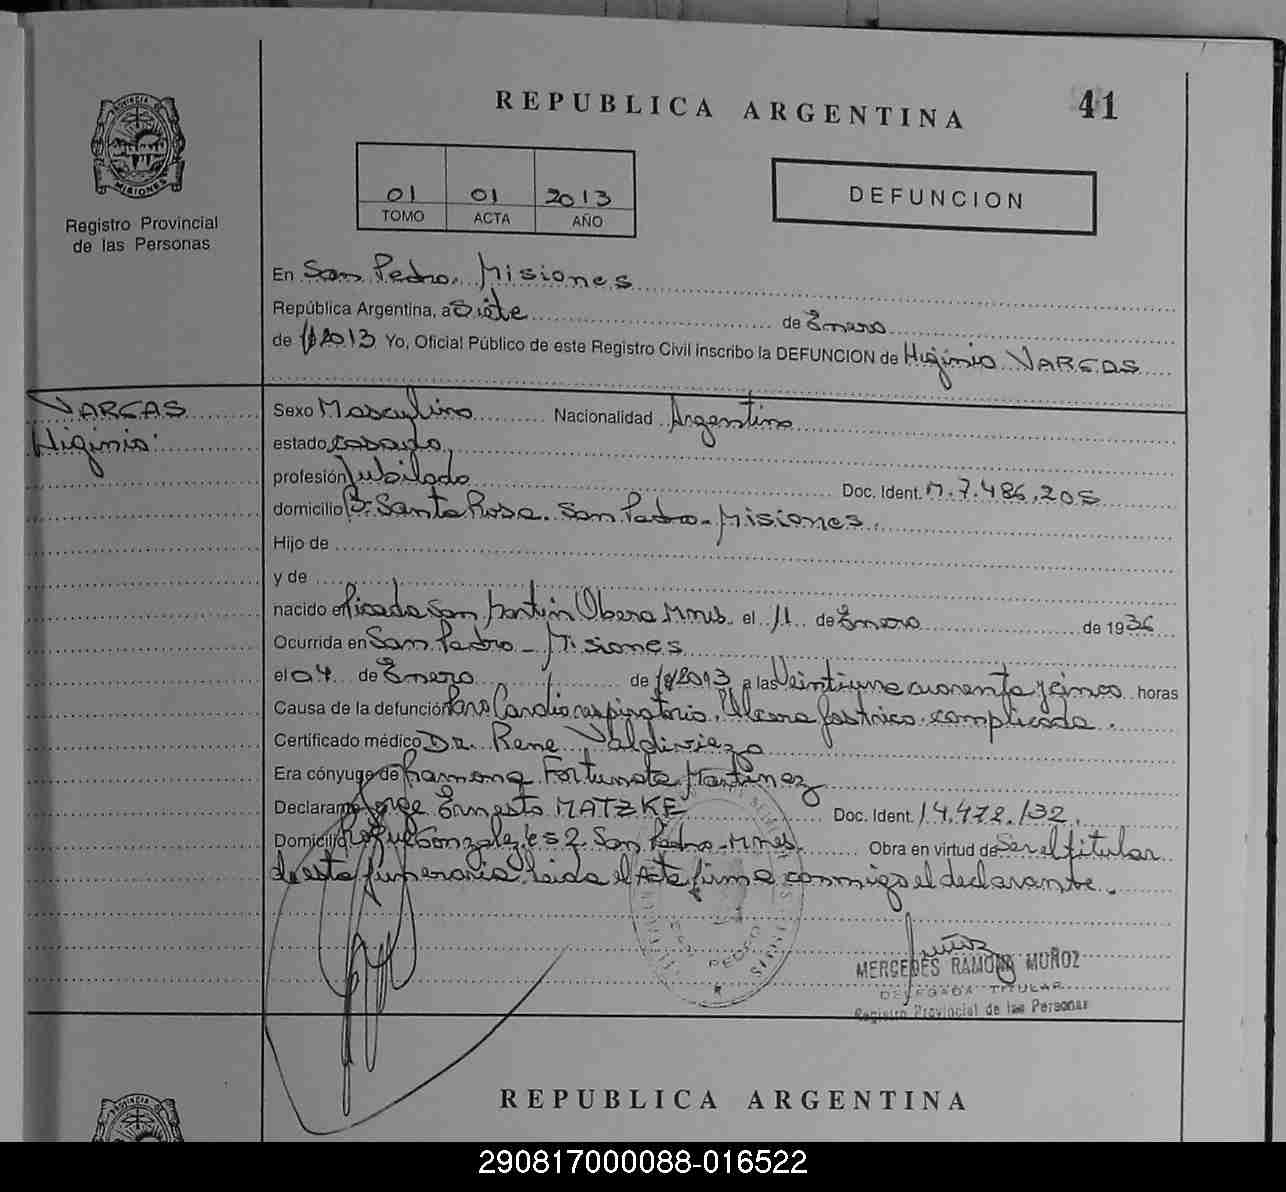 REPUBLICA ARGENTINA
41
01 01 2013
TOMO ACTA AÑO
DEFUNCION
PROVINCIA DE
MISIONES
Registro Provincial
de las Personas
En San Pedro. Misiones
República Argentina, a Siete de Enero
de 2013 Yo, Oficial Público de este Registro Civil inscribo la DEFUNCION de Higinio VARGAS
VARGAS
Higinio
Sexo Masculino Nacionalidad Argentino
estado casado
profesión Jubilado Doc. Ident. M. 7.486.205
domicilio B. Santa Rosa. San Pedro - Misiones.
Hijo de
y de
nacido en Picada San Martin Obera Mnes. el 11 de Enero de 1936
Ocurrida en San Pedro - Misiones
el 04 de Enero de 2013 a las Veintiuna cuarenta y cinco horas
Causa de la defunción Paro Cardio respiratorio, Ulcera gastrica complicada.
Certificado médico Dr. Rene Valdiviezo
Era cónyuge de Ramona Fortunata Martinez
Declarante Jorge Ernesto MATZKE Doc. Ident. 14.472.132.
Domicilio Roque Gonzalez 652. San Pedro - Mnes. Obra en virtud de Ser el titular
de esta funeraria. leida el Acta firma conmigo el declarante.
SAN PEDRO
MERCEDES RAMONA MUÑOZ
DELEGADA TITULAR
Registro Provincial de las Personas
REPUBLICA ARGENTINA
290817000088-016522